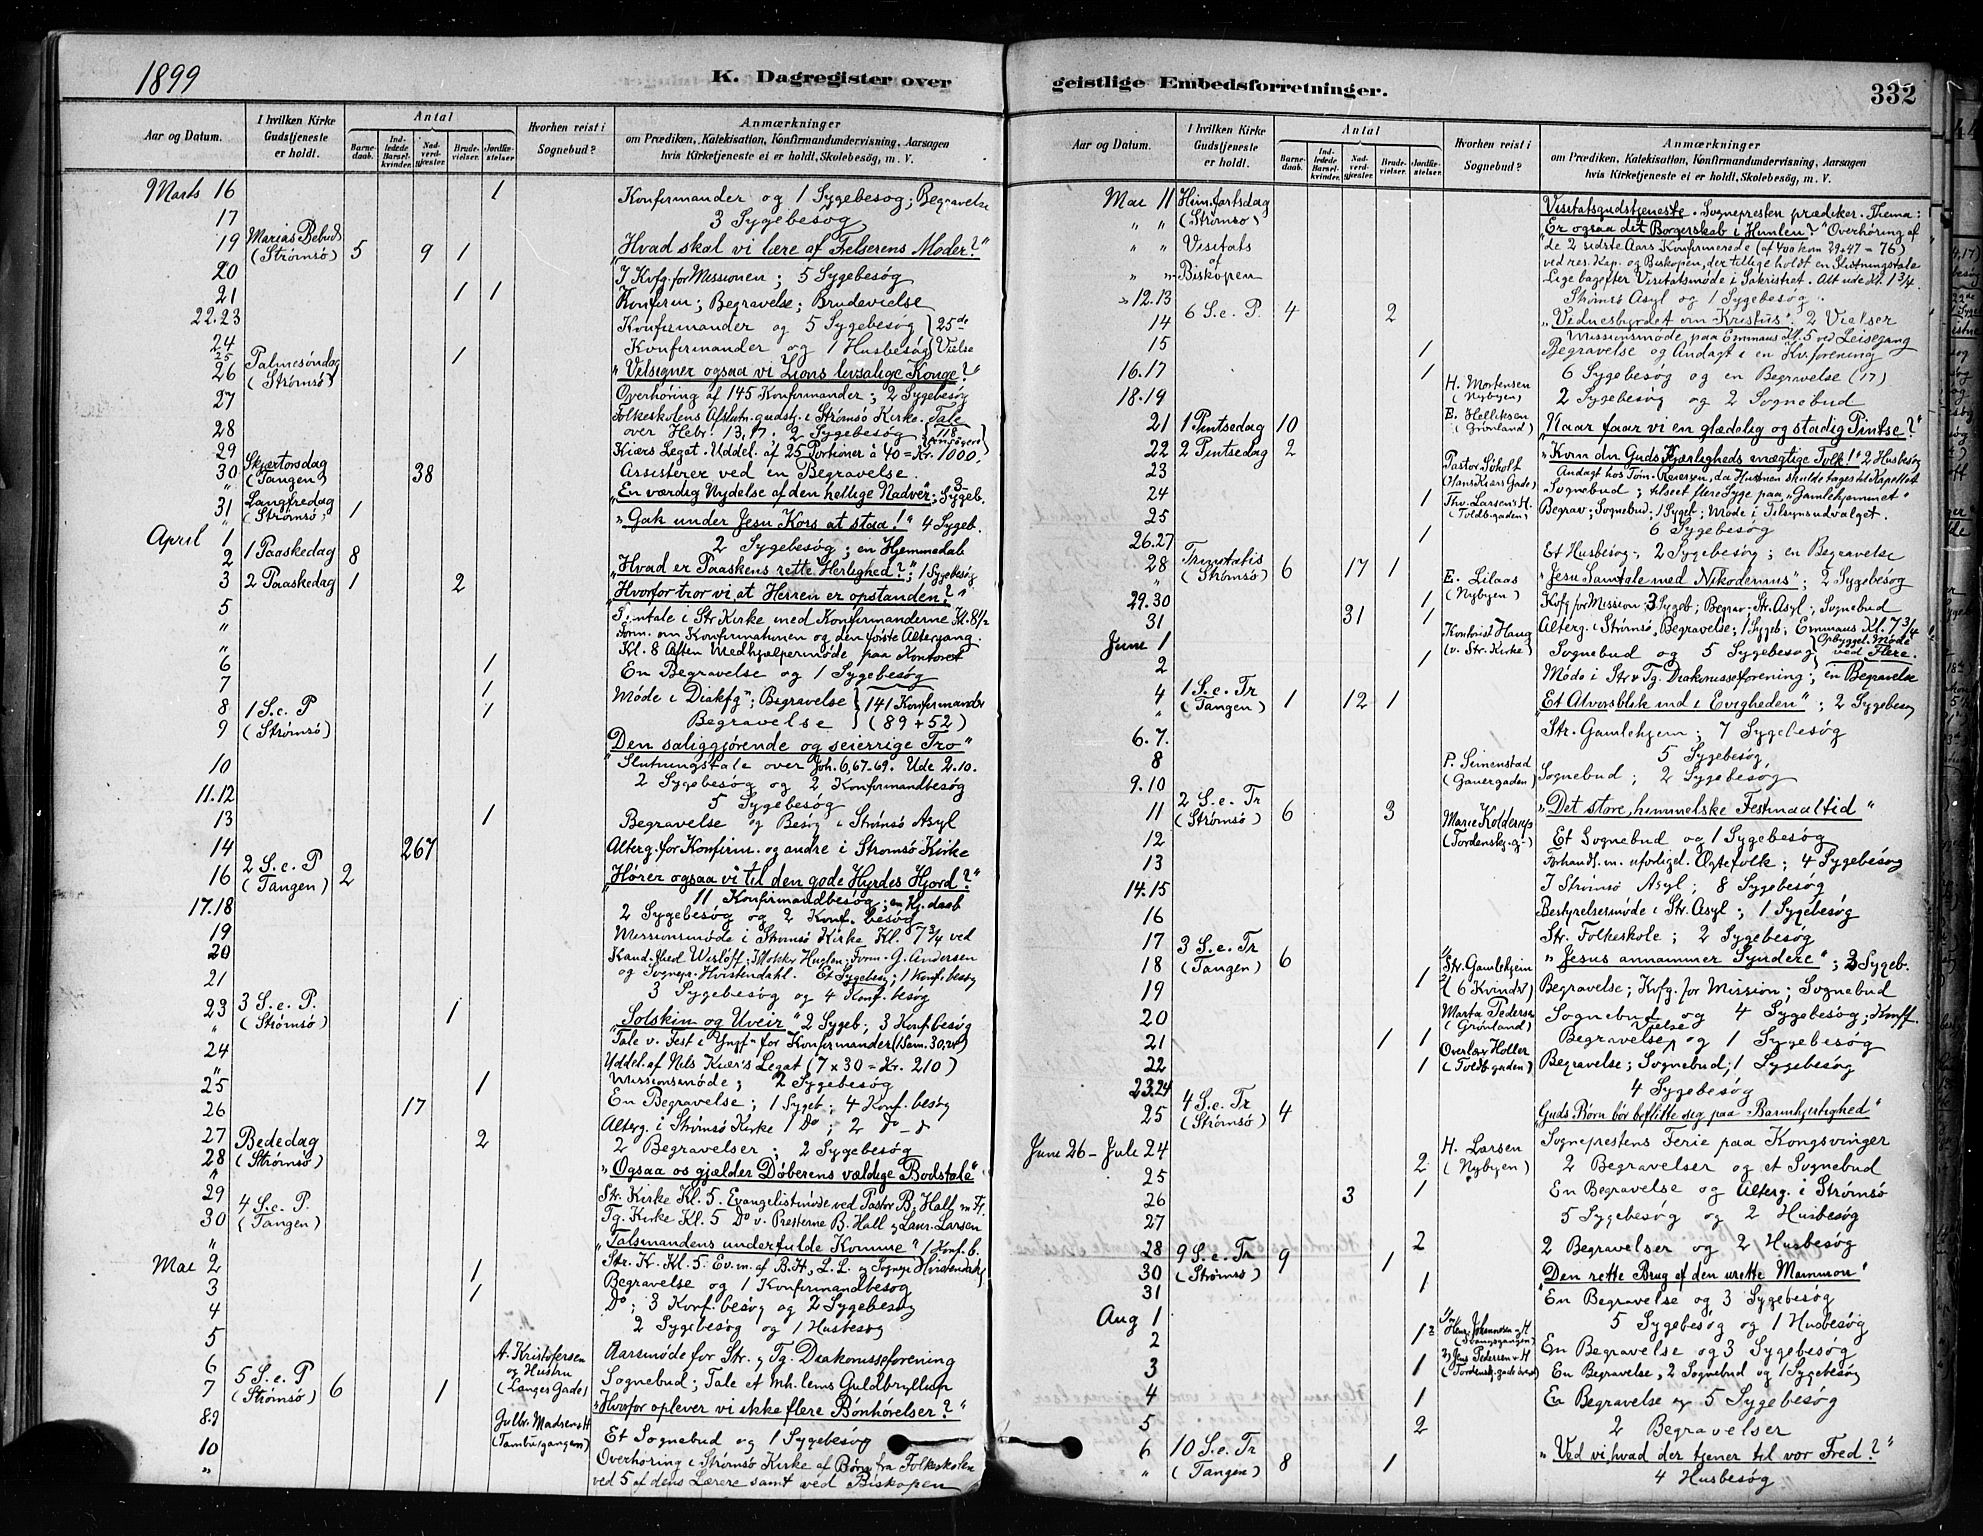 1899
K. Dagregister over
Aar og Datum.
I hvilken Kirke Gudstjeneste er holdt.
Antal
Barnedaab.
Indledede Barselkvinder.
Nadverdgjester.
Brudevielser.
Jordfæstelser.
Hvorhen reist i Sognebud?
Anmærkninger
om Prædiken, Katekisation, Konfirmandundervisning, Aarsagen
hvis Kirketjeneste ei er holdt, Skolebesøg, m. V.
Marts 16 1 Konfirmander og 1 Sygebesøg; Begravelse
17 3 Sygebesøg
19 Marias Bebud. (Strømsø) 5 9 1 "Hvad skal vi lære af Frelserens Moder?"
20 I Kvfg. for Missionen; 5 Sygebesøg
21 1 1 Konfirm; Begravelse; Brudevielse
22.23 Konfirmander og 5 Sygebesøg
24 Konfirmander og 1 Husbesøg 25de Vielse
25 1
26 Palmesøndag (Strømsø) "Velsigner ogsaa vi Zions livsalige Konge?"
27 Overhøring af 145 Konfirmander; 2 Sygebesøg
Folkeskolens Afslutn.gudstj. i Strømsø Kirke. Tale
28 over Hebr. 13,17, 2 Sygebesøg
29 Kiærs Legat. Uddel. af 25 Portioner à 40 = Kr. 1000. 118 Ansøgere
30 Skjærtorsdag (Tangen) 38 Assisterer ved en Begravelse.
" "En værdig Nydelse af den hellige Nadver"; 3 Sygeb.
31 Langfredag (Strømsø) 1 "Gak under Jesu Kors at staa!" 4 Sygeb.
April 1 2 Sygebesøg; en Hjemmedaab
2 1 Paaskedag 8 "Hvad er Paaskens rette Herlighed?"; 1 Sygebesøg
3 2 Paaskedag 1 2 "Hvorfor tror vi at Herren er opstanden?"
5 i Str Kirke med Konfirmanderne Kl. 8 1/2
" Form. om Konfirmationen og den første Altergang.
" Kl. 8 Aften Medhjælpermøde paa Kontoret
6 1 En Begravelse og 1 Sygebesøg
7 1 Møde i Diakfg"; Begravelse 141 Konfirmander
8 1 S. e. P (Strømsø) 1 Begravelse (89 + 52)
9 "Den saliggjørende og seierrige Tro"
" Slutningstale over Joh. 6,67-69. Ude 2.10.
10 2 Sygebesøg og 2 Konfirmandbesøg
11.12 5 Sygebesøg
13 1 Begravelse og Besøg i Strømsø Asyl
14 267 Alterg. for Konfirm. og andre i Strømsø Kirke
16 2 S. e. P (Tangen) 2 "Hører ogsaa vi til den gode Hyrdes Hjord?"
11 Konfirmandbesøg; en Hj. daab
17.18 2 Sygebesøg og 2 Konf. besøg
19 Missionsmøde i Strømsø Kirke Kl. 7 3/4 ved
20 Kand. Wisløff; Form. G. Andersen
og Sognepr. Hvistendahl. Et Sygebesøg, 1 Konf. besøg
21 3 Sygebesøg og 4 Konf. besøg
23 3 S. e. P. (Strømsø) 1 "Solskin og Uveir" 2 Sygeb; 3 Konf. besøg
" Tale v. Fest i Yngf" for Konfirmander
24 Uddel. af Nils Kiær's Legat (7 x 30 = Kr. 210)
" Missionsmøde; 2 Sygebesøg
25 1 En Begravelse; 1 Sygeb; 4 Konf. besøg
26 17 Alterg. i Strømsø Kirke 1 Do; 2 do - d
27 2 2 Begravelser; 2 Sygebesøg
28 Bededag (Strømsø) "Ogsaa os gjælder Døberens vældige Bodstale"
" Str. Kirke Kl. 5. Evangelistmøde ved Pastor B. Hall m Fr.
29 Tg. Kirke Kl. 5 Do v. Presterne B. Hall og Laur. Larsen
30 4 S. e. P. (Tangen) "Talsmandens underfulde Komme" 1 Konf. b.
" Str. K. Kl. 5. Ev. m. af B. H., L. L. og Sognepr Hvistendahl
Mai 2 1 Begravelse og 1 Konfirmandbesøg
3 1 Do; 3 Konf. besøg og 2 Sygebesøg
4 2 Sygebesøg og 1 Husbesøg
5 Aarsmøde for Str. og Tg. Diakonisseforening
6 A. Kristofersen og Hustru (Langes Gade) Sognebud; Tale et Mh. lems Guldbryllup
7 5 S. e. P (Strømsø) 6 1 "Hvorfor oplever vi ikke flere Bønhørelser?"
8.9 Gulbr. Madsen + H (Tamburgangen) Et Sognebud og 1 Sygebesøg
10 Overhøring i Strømsø Kirke af Børn fra Folkeskolen
" ved 5 af dens Lærere samt ved Biskopen
geistlige Embedsforretninger.
332
Aar og Datum.
I hvilken Kirke Gudstjeneste er holdt.
Antal
Barnedaab.
Indledede Barselkvinder.
Nadverdgjester.
Brudevielser.
Jordfæstelser.
Hvorhen reist i Sognebud?
Anmærkninger
om Prædiken, Katekisation, Konfirmandundervisning, Aarsagen
hvis Kirketjeneste ei er holdt, Skolebesøg, m. V.
Mai 11 Himmelfartsdag (Strømsø) Visitatsgudstjeneste. Sognepresten prædiker. Thema:
"Er ogsaa det Borgerskab i Himlen?" Overhøring af
" " Visitats de 2 sidste Aars Konfirmerede (af 400 kom 29+47 = 76)
af ved res. Kap. og Biskopen, der tillige holdt en Slutningstale
" " Biskopen Lige bagefter Visitatsmøde i Sakristiet. Alt ude Kl. 1 3/4.
" 12.13 Strømsø Asyl og 1 Sygebesøg.
14 6 S. e. P. 4 2 "Vidnesbyrdet om Kristus"; 2 Vielser
Missionsmøde paa Emmaus Kl. 5 ved Leisegang
15 1 Begravelse og Andagt i en Kv.forening
16.17 1 6 Sygebesøg og en Begravelse (17)
18.19 H. Mortensen (Nybyen) 2 Sygebesøg og 2 Sognebud
E. Helliksen (Grønland)
21 1 Pintsedag 10 "Naar faar vi en glædelig og stadig Pintse?"
22 2 Pintsedag 2 "Kom du Guds Kjærligheds mægtige Tolk!" 2 Husbesøg
23 Pastor Sikolt (Hans Kiærs Gade) Andagt hos Tom. Reiersen, da Hustruen skulde tages til Kapellet
24 Sognebud; tilseet flere Syge paa "Gamlehjemmet"
25 1 Thv. Larsen's H. (Toldb.gaden) Begrav; Sognebud; 1 Sygeb; Møde i Tilsynsudvalget.
26.27 6 Sygebesøg
1 Et Husbesøg, 2 Sygebesøg; en Begravelse
28 Trinitatis (Strømsø) 6 17 1 "Jesu Samtale med Nikodemus"; 2 Sygebesøg
29.30 1 E. Lilaas (Nybyen) Kvfg for Mission; 3 Sygeb; Begrav- Str. Asyl; Sognebud
31 31 1 Alterg. i Strømsø, Begravelse; 1 Sygeb; Emmaus Kl. 7 3/4
June 1 Kontorist Haug (v. Str. Kirke) Sognebud og 5 Sygebesøg Opbyggel. Møde ved Flere.
2 1 Møde i Str & Tg. Diakonisseforening; en Begravelse
4 1 S. e. Tr (Tangen) 1 12 1 "Et Alvorsblik ind i Evigheden"; 2 Sygebesøg
6.7. Str. Gamlehjem; 7 Sygebesøg
8 5 Sygebesøg,
9.10 P. Seinenstad (Gauergaden) Sognebud; 2 Sygebesøg
11 2 S. e. Tr (Strømsø) 6 3 "Det store, himmelske Festmaaltid"
12 Marie Kolderup (Tordenskj.-g-) Et Sognebud og 1 Sygebesøg
13 Forhandl. m. uforligel. Ægtefolk; 4 Sygebesøg
14.15 I Strømsø Asyl; 8 Sygebesøg
16 Bestyrelsesmøde i Str. Asyl; 1 Sygebesøg
17 Str. Folkeskole; 2 Sygebesøg
18 3 S. e. Tr (Tangen) 6 "Jesus annammer Syndere"; 3 Sygeb.
19 1 Str. Gamlehjem (6 Kvinder) Begravelse; Kvfg. for Mission; Sognebud
20 Marta Pedersen (Grønland) Sognebud og 4 Sygebesøg; Konff.
21 1 1 Begravelse, Vielse og 1 Sygebesøg
22 1 Overlær Holler (Toldb.gaden) Begravelse; Sognebud; 1 Sygebesøg
23.24 4 Sygebesøg
25 4 S. e. Tr (Strømsø) 4 "Guds Børn bør beflitte sig paa Barmhjertighed"
June 26 - Jule 24 Sogneprestens Ferie paa Kongsvinger
25 2 H. Larsen (Nybyen) 2 Begravelser og et Sognebud
26 3 1 En Begravelse og Alterg. i Strømsø
27 5 Sygebesøg og 2 Husbesøg
28 2 2 Begravelser og 2 Husbesøg
30 9 S. e. Tr (Strømsø) 9 1 "Den rette Brug af den urette Mammon"
31 1 En Begravelse og 3 Sygebesøg
Aug 1 5 Sygebesøg og 1 Husbesøg
2 1 Henr. Johannesen + H (Svangsgangen) En Begravelse og 3 Sygebesøg
3 1 Jens Pedersen + H (Tordenskj. gade øvre) En Begravelse, 2 Sognebud og 1 Sygebesøg
4 1 En Begravelse og 5 Sygebesøg
5 2 2 Begravelser
6 10 S. e. Tr (Tangen) 8 1 "Ved vi hvad der tjener til vor Fred?"
" 4 Husbesøg